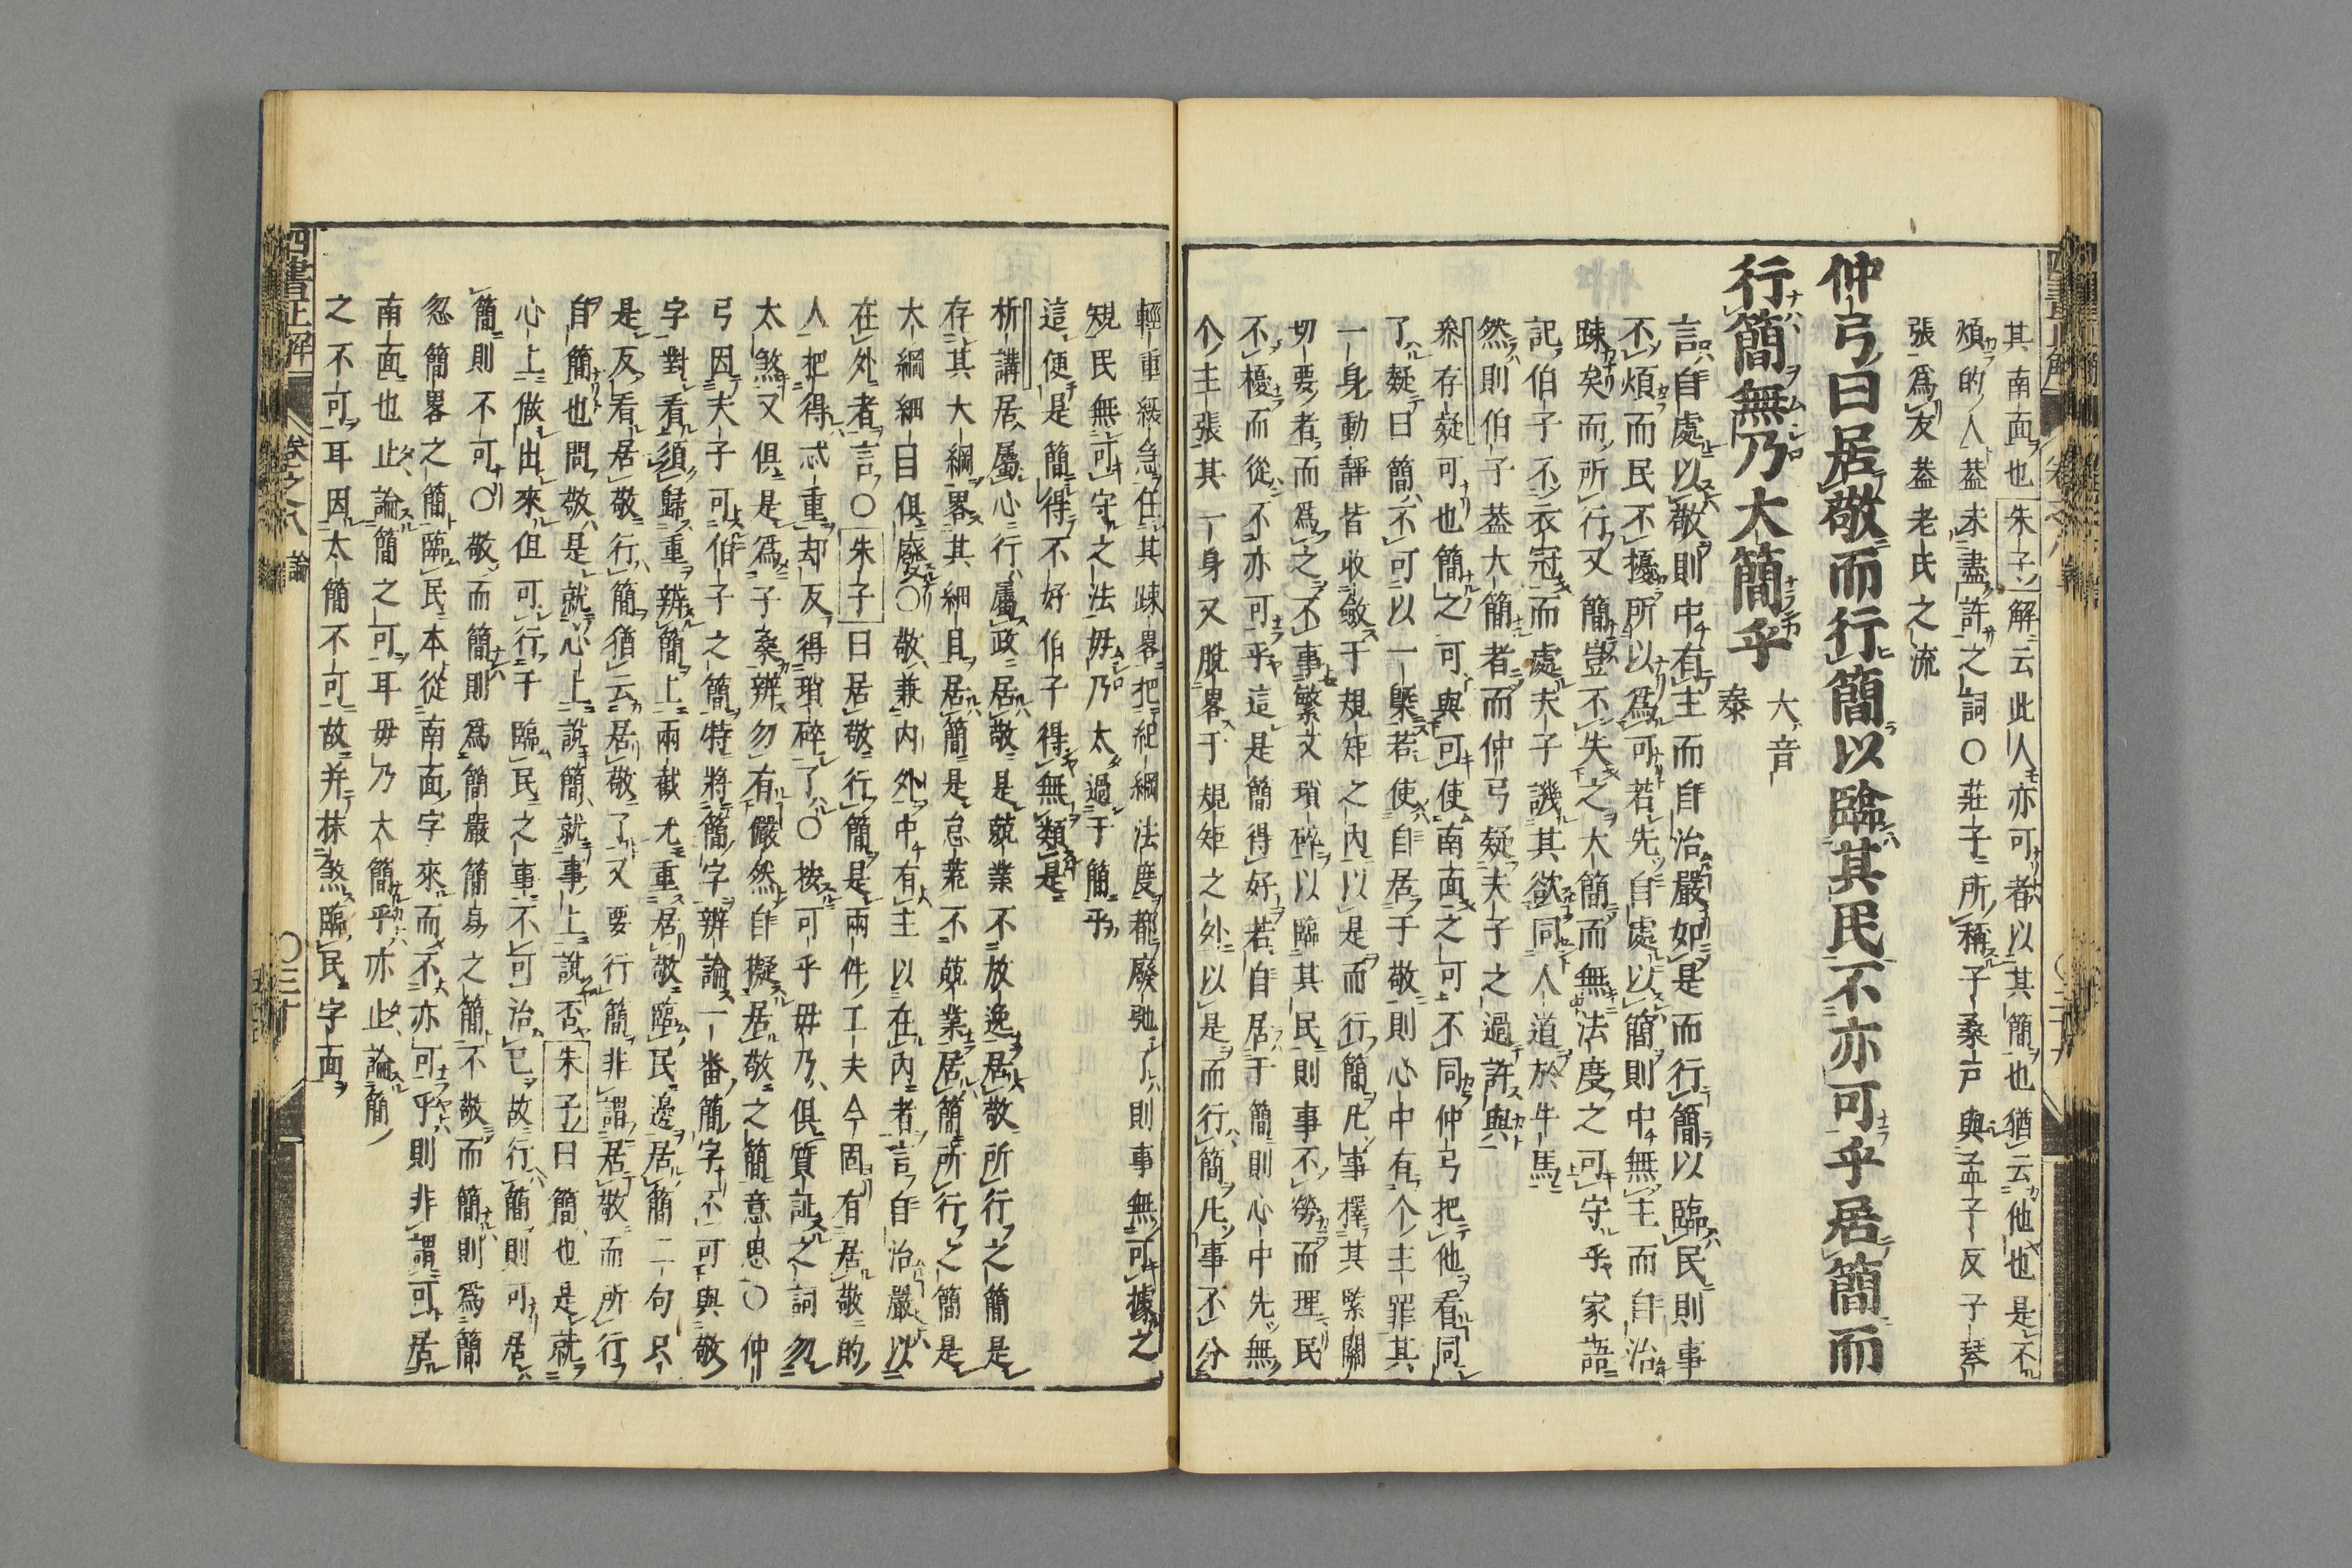 其南面也朱子解云此人亦可者以其簡也猶云他也是不
煩的人葢未盡許之詞○莊子所稱子桑戸與孟子反子琴
張爲友葢老氏之流
仲弓曰居敬而行簡以臨其民不亦可乎居簡而
行簡無乃大簡乎
大音
泰
言自處以敬則中有主而自治嚴如是而行簡以臨民則事
不煩而民不擾所以爲可若先自處以簡則中無主而自治
踈矣而所行又簡豈不失之大簡而無法度之可守乎家語
記伯子不衣冠而處夫子譏其欲同人道於牛馬
然則伯子葢大簡者而仲弓疑夫子之過許與
叅存疑可也簡之可與可使南面之可不同仲弓把他看同
了疑曰簡不可以一槩若使自居于敬則心中有个主罪其
一身動靜皆收斂于規矩之內以是而行簡凡事擇其緊關
切要者而爲之不事繁文瑣碎以臨其民則事不勞而理民
不擾而從不亦可乎這是簡得好若自居于簡則心中先無
个主張其一身又脫畧于規矩之外以是而行簡凡事不分
輕重緩急任其踈畧把紀綱法度都廢弛了則事無可據之
規民無可守之法毋乃太過于簡乎
這便是簡得不好伯子得無類是
析講居屬心行屬政居敬是兢業不放逸居敬所行之簡是
存其大綱畧其細目居簡是怠荒不兢業居簡所行之簡是
大綱細目俱廢○敬兼內外中有主以在內者言自治嚴以
在外者言○朱子曰居敬行簡是兩件工夫今固有居敬的
人把得忒重却反得瑣碎了○按可乎毋乃俱質証之詞勿
太煞又俱是爲子桑辨勿有儼然自擬居敬之簡意思○仲
弓因夫子可伯子之簡特將簡字辨論一番簡字不可與敬
字對看須歸重辨簡上兩截尤重居敬臨民邊居簡二句只
是反看居敬行簡猶云居敬了又要行簡非謂居敬而所行
自簡也問敬是就心上說簡就事上說否朱子曰簡也是就
心上做出來但可行于臨民之事不可治己故行簡則可居
簡則不可○敬而簡則爲簡嚴簡易之簡不敬而簡則爲簡
忽簡畧之簡臨民本從南面字來而不亦可乎則非謂可居
南面也止論簡之可耳毋乃太簡乎亦止論簡
之不可耳因太簡不可故并抹煞臨民字面
四書正解
卷之八
論
○三十